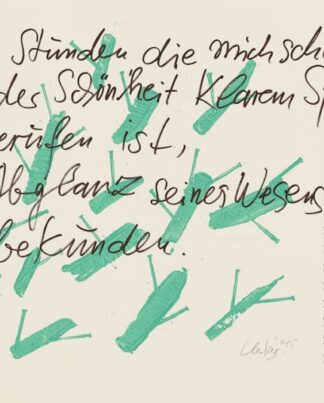 Stunden die mich sch
des Schönheit Klarem Sp
erufen ist,
Abglanz seines Wesens
bekunden.